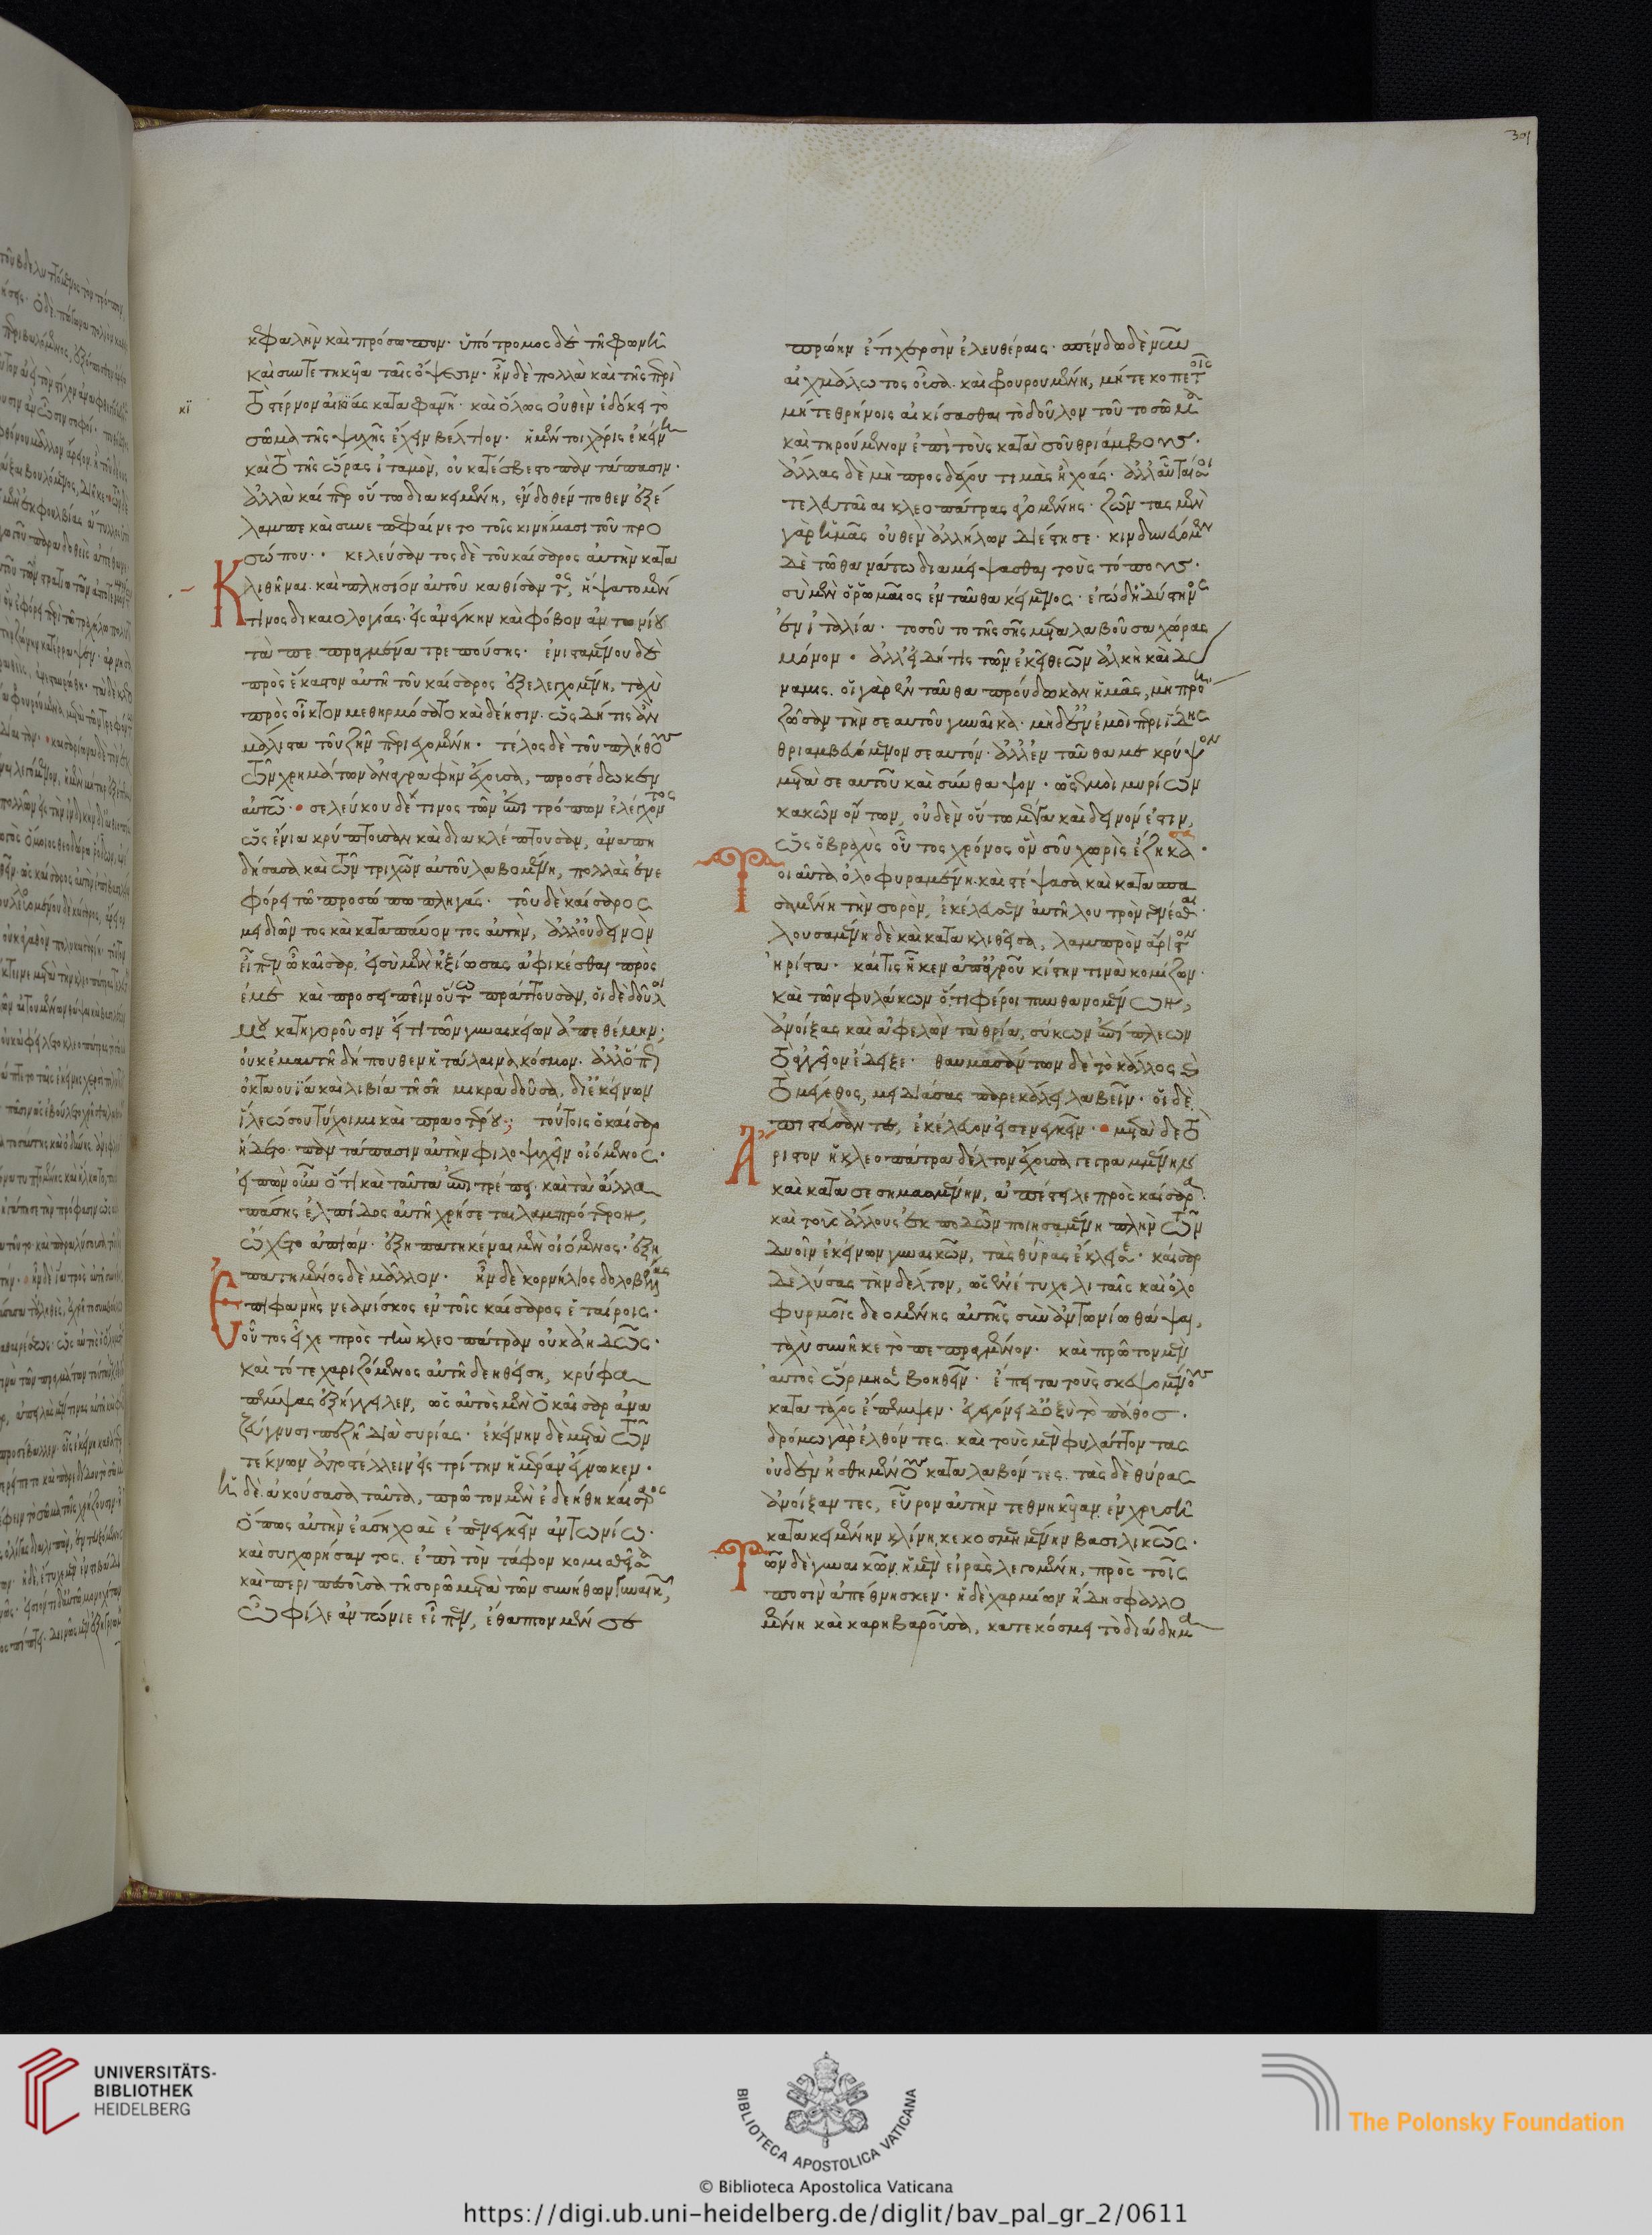 κεφαλὴν καὶ πρόσωπον· ὑπότρομος δὲ τῇ φωνῇ
καὶ συντετηκυῖα ταῖς ὄψεσιν· ἦν δὲ πολλὰ καὶ τῆς περὶ
τὸ στέρνον αἰκίας καταφανῆ· καὶ ὅλως οὐθὲν ἐδόκει τὸ
σῶμα τῆς ψυχῆς ἔχειν βέλτιον· ἡ μέντοι χάρις ἐκείνη
καὶ τὸ τῆς ὥρας ἰταμὸν, οὐ κατέσβεστο παντάπασιν·
ἀλλὰ καίπερ οὕτω διακειμένη, ἔνδοθέν ποθεν ἐξέ
λαμπε καὶ συνεπεφαίνετο τοῖς κινήμασι τοῦ προ
σώπου· κελεύσαντος δὲ τοῦ καίσαρος αὐτὴν κατα
Κλιθῆναι καὶ πλησίον αὐτοῦ καθίσαντος, ἥψατο μέν
τινος δικαιολογίας· εἰς ἀνάγκην καὶ φόβον ἀντωνίου
τὰ πεπραγμένα τρεπούσης· ἐνισταμένου δὲ
πρὸς ἕκαστον αὐτῇ τοῦ καίσαρος ἐξελεγχομένη, ταχὺ
πρὸς οἶκτον μεθηρμόσατο καὶ δέησιν· ὡς δή τις ἂν
μάλιστα τοῦ ζῆν περιεχομένη· τέλος δὲ τοῦ πλήθους
τῶν χρημάτων ἀναγραφὴν ἔχουσα, προσέδωκεν
αὐτῷ· σελεύκου δέ τινος τῶν ἐπιτρόπων ἐλέγχοντος
ὡς ἔνια κρύπτουσαν καὶ διακλέπτουσαν, ἀναπη
δήσασα καὶ τῶν τριχῶν αὐτοῦ λαβομένη, πολλὰς ἐνε
φόρει τῷ προσώπῳ πληγάς· τοῦ δὲ καίσαρος
μειδιῶντος καὶ καταπαύοντος αὐτὴν, ἀλλ' οὐ δεινὸν
εἶπεν ὦ καῖσαρ, εἰ σὺ μὲν ἠξίωσας ἀφικέσθαι πρὸς
ἐμὲ καὶ προσειπεῖν οὕτω πράττουσαν, οἱ δὲ δοῦλοί
μου κατηγοροῦσιν εἴ τι τῶν γυναικείων ἀπεθέμην·
οὐκ ἐμαυτῇ δήπουθεν ἡ τάλαινα κόσμον· ἀλλ'
ὀκταουίᾳ καὶ λιβίᾳ τῇ σῇ μικρὰ δοῦσα, δι' ἐκείνων
ἵλεώ σου τύχοιμι καὶ πραοτέρου· τούτοις ὁ καίσαρ
ἥδετο· παντάπασιν αὐτὴν φιλοψυχεῖν οἰόμενος·
εἰπὼν οὖν ὅτι καὶ ταῦτα ἐπιτρέπει· καὶ τὰ ἄλλα
πάσης ἐλπίδος αὐτῇ χρήσεται λαμπρότερον,
ᾤχετο ἀπιών· ἐξηπατηκέναι μὲν οἰόμενος· ἐξη
πατημένος δὲ μᾶλλον· ἦν δὲ κορνήλιος δολοβέλλας
Ἐπιφανὴς νεανίσκος ἐν τοῖς καίσαρος ἑταίροις·
οὗτος εἶχε πρὸς τὴν κλεοπάτραν οὐκ ἀηδῶς·
καὶ τότε χαριζόμενος αὐτῇ δεηθείσῃ, κρύφα
πέμψας ἐξήγγειλεν, ὡς αὐτὸς μὲν ὁ καῖσαρ ἀνα
ζεύγνυσι πεζῇ διὰ συρίας· ἐκείνην δὲ μετὰ τῶν
τέκνων ἀποστέλλειν εἰς τρίτην ἡμέραν ἔγνωκεν·
ἡ δὲ ἀκούσασα ταῦτα, πρῶτον μὲν ἐδεήθη καίσαρος
ὅπως αὐτὴν ἐάσῃ χοὰς ἐπενεγκεῖν ἀντωνίῳ·
καὶ συγχωρήσαντος, ἐπὶ τὸν τάφον κομισθεῖσα
καὶ περιπεσοῦσα τῇ σορῷ μετὰ τῶν συνήθων γυναικῶν,
ὦ φίλε ἀντώνιε εἶπεν, ἔθαπτον μέν σε
πρώην ἔτι χερσὶν ἐλευθέραις· σπένδω δὲ νῦν
αἰχμάλωτος οὖσα καὶ φρουρουμένη, μήτε κοπετοῖς
μήτε θρήνοις αἰκίσασθαι τὸ δοῦλον τοῦτο σῶμα
καὶ τηρούμενον ἐπὶ τοὺς κατὰ σοῦ θριάμβους·
ἄλλας δὲ μὴ προσδέχου τιμὰς ἢ χοάς· ἀλλ' αὗταί σοι
τελευταῖαι κλεοπάτρας ἀγομένης· ζῶντας μὲν
γὰρ ἡμᾶς οὐθὲν ἀλλήλων διέστησε· κινδυνεύομεν
δὲ τῷ θανάτῳ διαμείψασθαι τοὺς τόπους·
σὺ μὲν ὁ ῥωμαῖος ἐνταῦθα κείμενος· ἐγὼ δὲ ἡ δύστηνος
ἐν ἰταλίᾳ· τοσοῦτο τῆς σῆς μεταλαβοῦσα χώρας
μόνον· ἀλλ' εἰ δή τις τῶν ἐκεῖ θεῶν ἀλκὴ καὶ δύ
ναμις· οἱ γὰρ ἐνταῦθα προύδωκαν ἡμᾶς, μὴ πρόῃ
ζῶσαν τὴν σεαυτοῦ γυναῖκα· μηδ' ἐν ἐμοὶ περιίδῃς
θριαμβευόμενον σεαυτόν· ἀλλ' ἐνταῦθα με κρύψον
μετὰ σεαυτοῦ καὶ σύνθαψον· ὡς ἐμοὶ μυρίων
κακῶν ὄντων, οὐδὲν οὕτω μέγα καὶ δεινόν ἐστιν,
ὡς ὁ βραχὺς οὗτος χρόνος ὃν σοῦ χωρὶς ἔζηκα·
Τοιαῦτα ὀλοφυραμένη καὶ στέψασα καὶ κατασπα
σαμένη τὴν σορὸν, ἐκέλευσεν αὐτῇ λουτρὸν γενέσθαι·
λουσαμένη δὲ καὶ κατακλιθεῖσα, λαμπρὸν ἄριστον
ἠρίστα· καί τις ἧκεν ἀπ' ἀγροῦ κίστην τινὰ κομίζων·
καὶ τῶν φυλάκων ὅ,τι φέροι πυνθανομένων,
ἀνοίξας καὶ ἀφελὼν τὰ θρῖα, σύκων ἐπίπλεων
τὸ ἀγγεῖον ἔδειξε· θαυμασάντων δὲ τὸ κάλλος καὶ
τὸ μέγεθος, μειδιάσας παρεκάλει λαβεῖν· οἱ δὲ
πιστεύσαντες, ἐκέλευον εἰσενεγκεῖν· μετὰ δὲ τὸ
Ἄριστον ἡ κλεοπάτρα δέλτον ἔχουσα γεγραμμένην
καὶ κατασεσημασμένην, ἀπέστειλε πρὸς καίσαρα·
καὶ τοὺς ἄλλους ἐκποδὼν ποιησαμένη πλὴν τῶν
δυοῖν ἐκείνων γυναικῶν, τὰς θύρας ἔκλεισε· καῖσαρ
δὲ λύσας τὴν δέλτον, ὡς ἐνέτυχε λιταῖς καὶ ὀλο
φυρμοῖς δεομένης αὐτὴν σὺν ἀντωνίῳ θάψαι,
ταχὺ συνῆκε τὸ πεπραγμένον· καὶ πρῶτον μὲν
αὐτὸς ὥρμησε βοηθεῖν· ἔπειτα τοὺς σκεψομένους
κατὰ τάχος ἔπεμψεν· ἐγεγόνει δ' ὀξὺ τὸ πάθος·
δρόμῳ γὰρ ἐλθόντες, καὶ τοὺς μὲν φυλάττοντας
οὐδὲν ᾐσθημένους καταλαβόντες, τὰς δὲ θύρας
ἀνοίξαντες, εὗρον αὐτὴν τεθνηκυῖαν, ἐν χρυσῇ
κατακειμένην κλίνῃ, κεκοσμημένην βασιλικῶς·
Τῶν δὲ γυναικῶν, ἡ μὲν εἰρὰς λεγομένη, πρὸς τοῖς
ποσὶν ἀπέθνησκεν· ἡ δὲ χάρμιον ἤδη σφαλλο
μένη καὶ καρηβαροῦσα, κατεκόσμει τὸ διάδημα
301
UNIVERSITÄTS-
BIBLIOTHEK
HEIDELBERG
BIBLIOTECA APOSTOLICA VATICANA
The Polonsky Foundation
© Biblioteca Apostolica Vaticana
https://digi.ub.uni-heidelberg.de/diglit/bav_pal_gr_2/0611